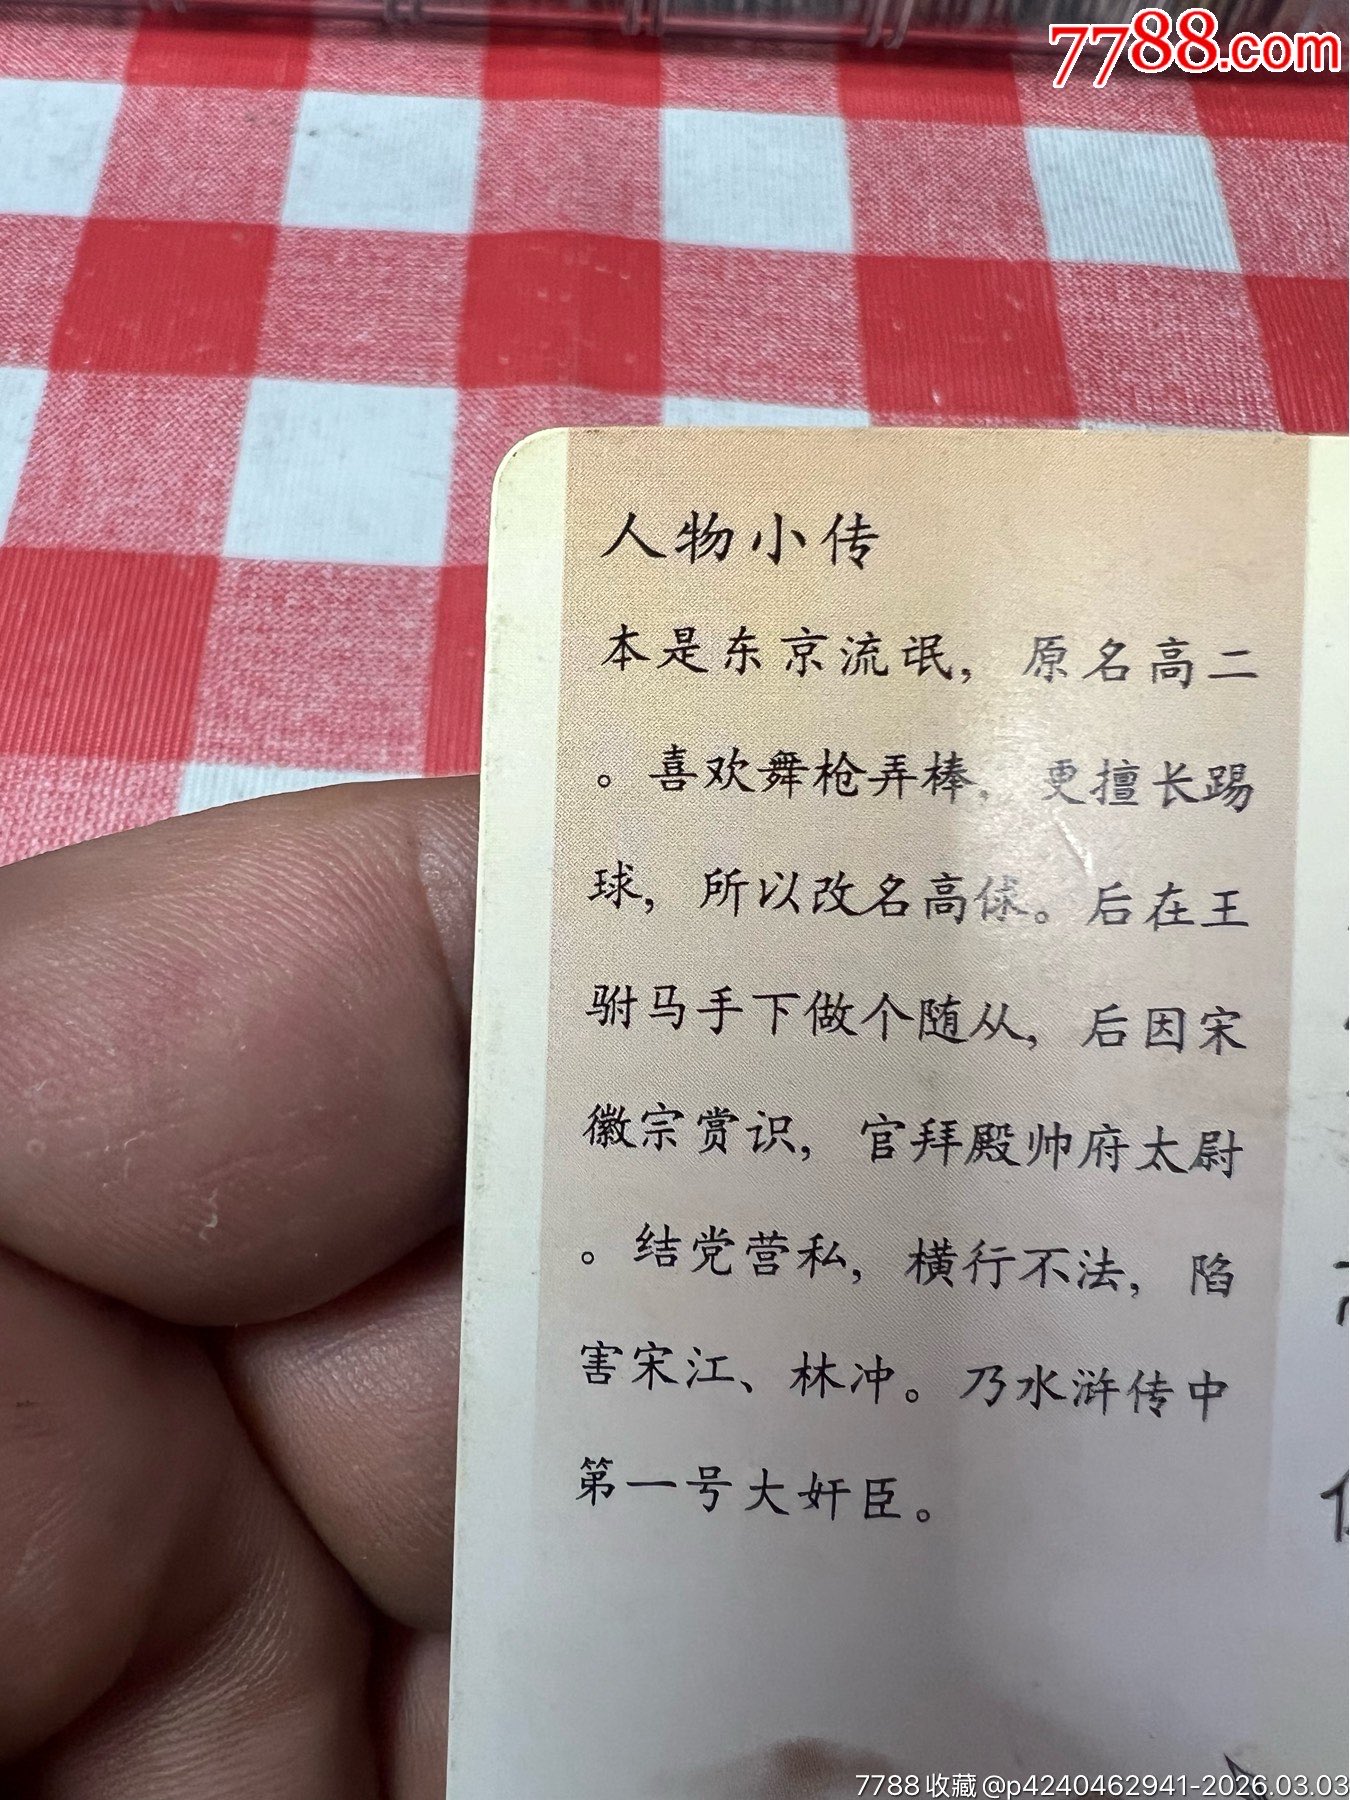 7788.com
人物小传
本是东京流氓，原名高二
。喜欢舞枪弄棒，更擅长踢
球，所以改名高俅。后在王
驸马手下做个随从，后因宋
徽宗赏识，官拜殿帅府太尉
。结党营私，横行不法，陷
害宋江、林冲。乃水浒传中
第一号大奸臣。
7788收藏@p4240462941-2026.03.03